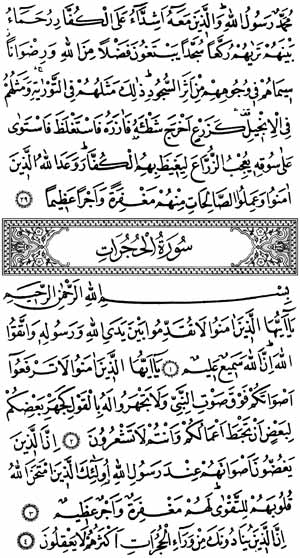 مُحَمَّدٌ رَسُولُ اللهِ وَالَّذِينَ مَعَهُ أَشِدَّاءُ عَلَى الْكُفَّارِ رُحَمَاءُ
بَيْنَهُمْ تَرَيهُمْ رُكَّعًا سُجَّدًا يَبْتَغُونَ فَضْلًا مِنَ اللهِ وَرِضْوَانًا
سِيمَاهُمْ فِي وُجُوهِهِمْ مِنْ أَثَرِ السُّجُودِ ذَلِكَ مَثَلُهُمْ فِي التَّوْرَيةِ وَمَثَلُهُمْ
فِي الْإِنْجِيلِ كَزَرْعٍ أَخْرَجَ شَطْئَهُ فَآزَرَهُ فَاسْتَغْلَظَ فَاسْتَوَى
عَلَى سُوقِهِ يُعْجِبُ الزُّرَّاعَ لِيَغِيظَ بِهِمُ الْكُفَّارَ وَعَدَ اللهُ الَّذِينَ
آمَنُوا وَعَمِلُوا الصَّالِحَاتِ مِنْهُمْ مَغْفِرَةً وَأَجْرًا عَظِيمًا ﴿٢٩﴾
سُورَةُ الْحُجُرَاتِ
بِسْمِ اللهِ الرَّحْمَنِ الرَّحِيمِ
يَا أَيُّهَا الَّذِينَ آمَنُوا لَا تُقَدِّمُوا بَيْنَ يَدَيِ اللهِ وَرَسُولِهِ وَاتَّقُوا
اللهَ إِنَّ اللهَ سَمِيعٌ عَلِيمٌ ﴿١﴾ يَا أَيُّهَا الَّذِينَ آمَنُوا لَا تَرْفَعُوا
أَصْوَاتَكُمْ فَوْقَ صَوْتِ النَّبِيِّ وَلَا تَجْهَرُوا لَهُ بِالْقَوْلِ كَجَهْرِ بَعْضِكُمْ
لِبَعْضٍ أَنْ تَحْبَطَ أَعْمَالُكُمْ وَأَنْتُمْ لَا تَشْعُرُونَ ﴿٢﴾ إِنَّ الَّذِينَ
يَغُضُّونَ أَصْوَاتَهُمْ عِنْدَ رَسُولِ اللهِ أُولَئِكَ الَّذِينَ امْتَحَنَ اللهُ
قُلُوبَهُمْ لِلتَّقْوَى لَهُمْ مَغْفِرَةٌ وَأَجْرٌ عَظِيمٌ ﴿٣﴾
إِنَّ الَّذِينَ يُنَادُونَكَ مِنْ وَرَاءِ الْحُجُرَاتِ أَكْثَرُهُمْ لَا يَعْقِلُونَ ﴿٤﴾